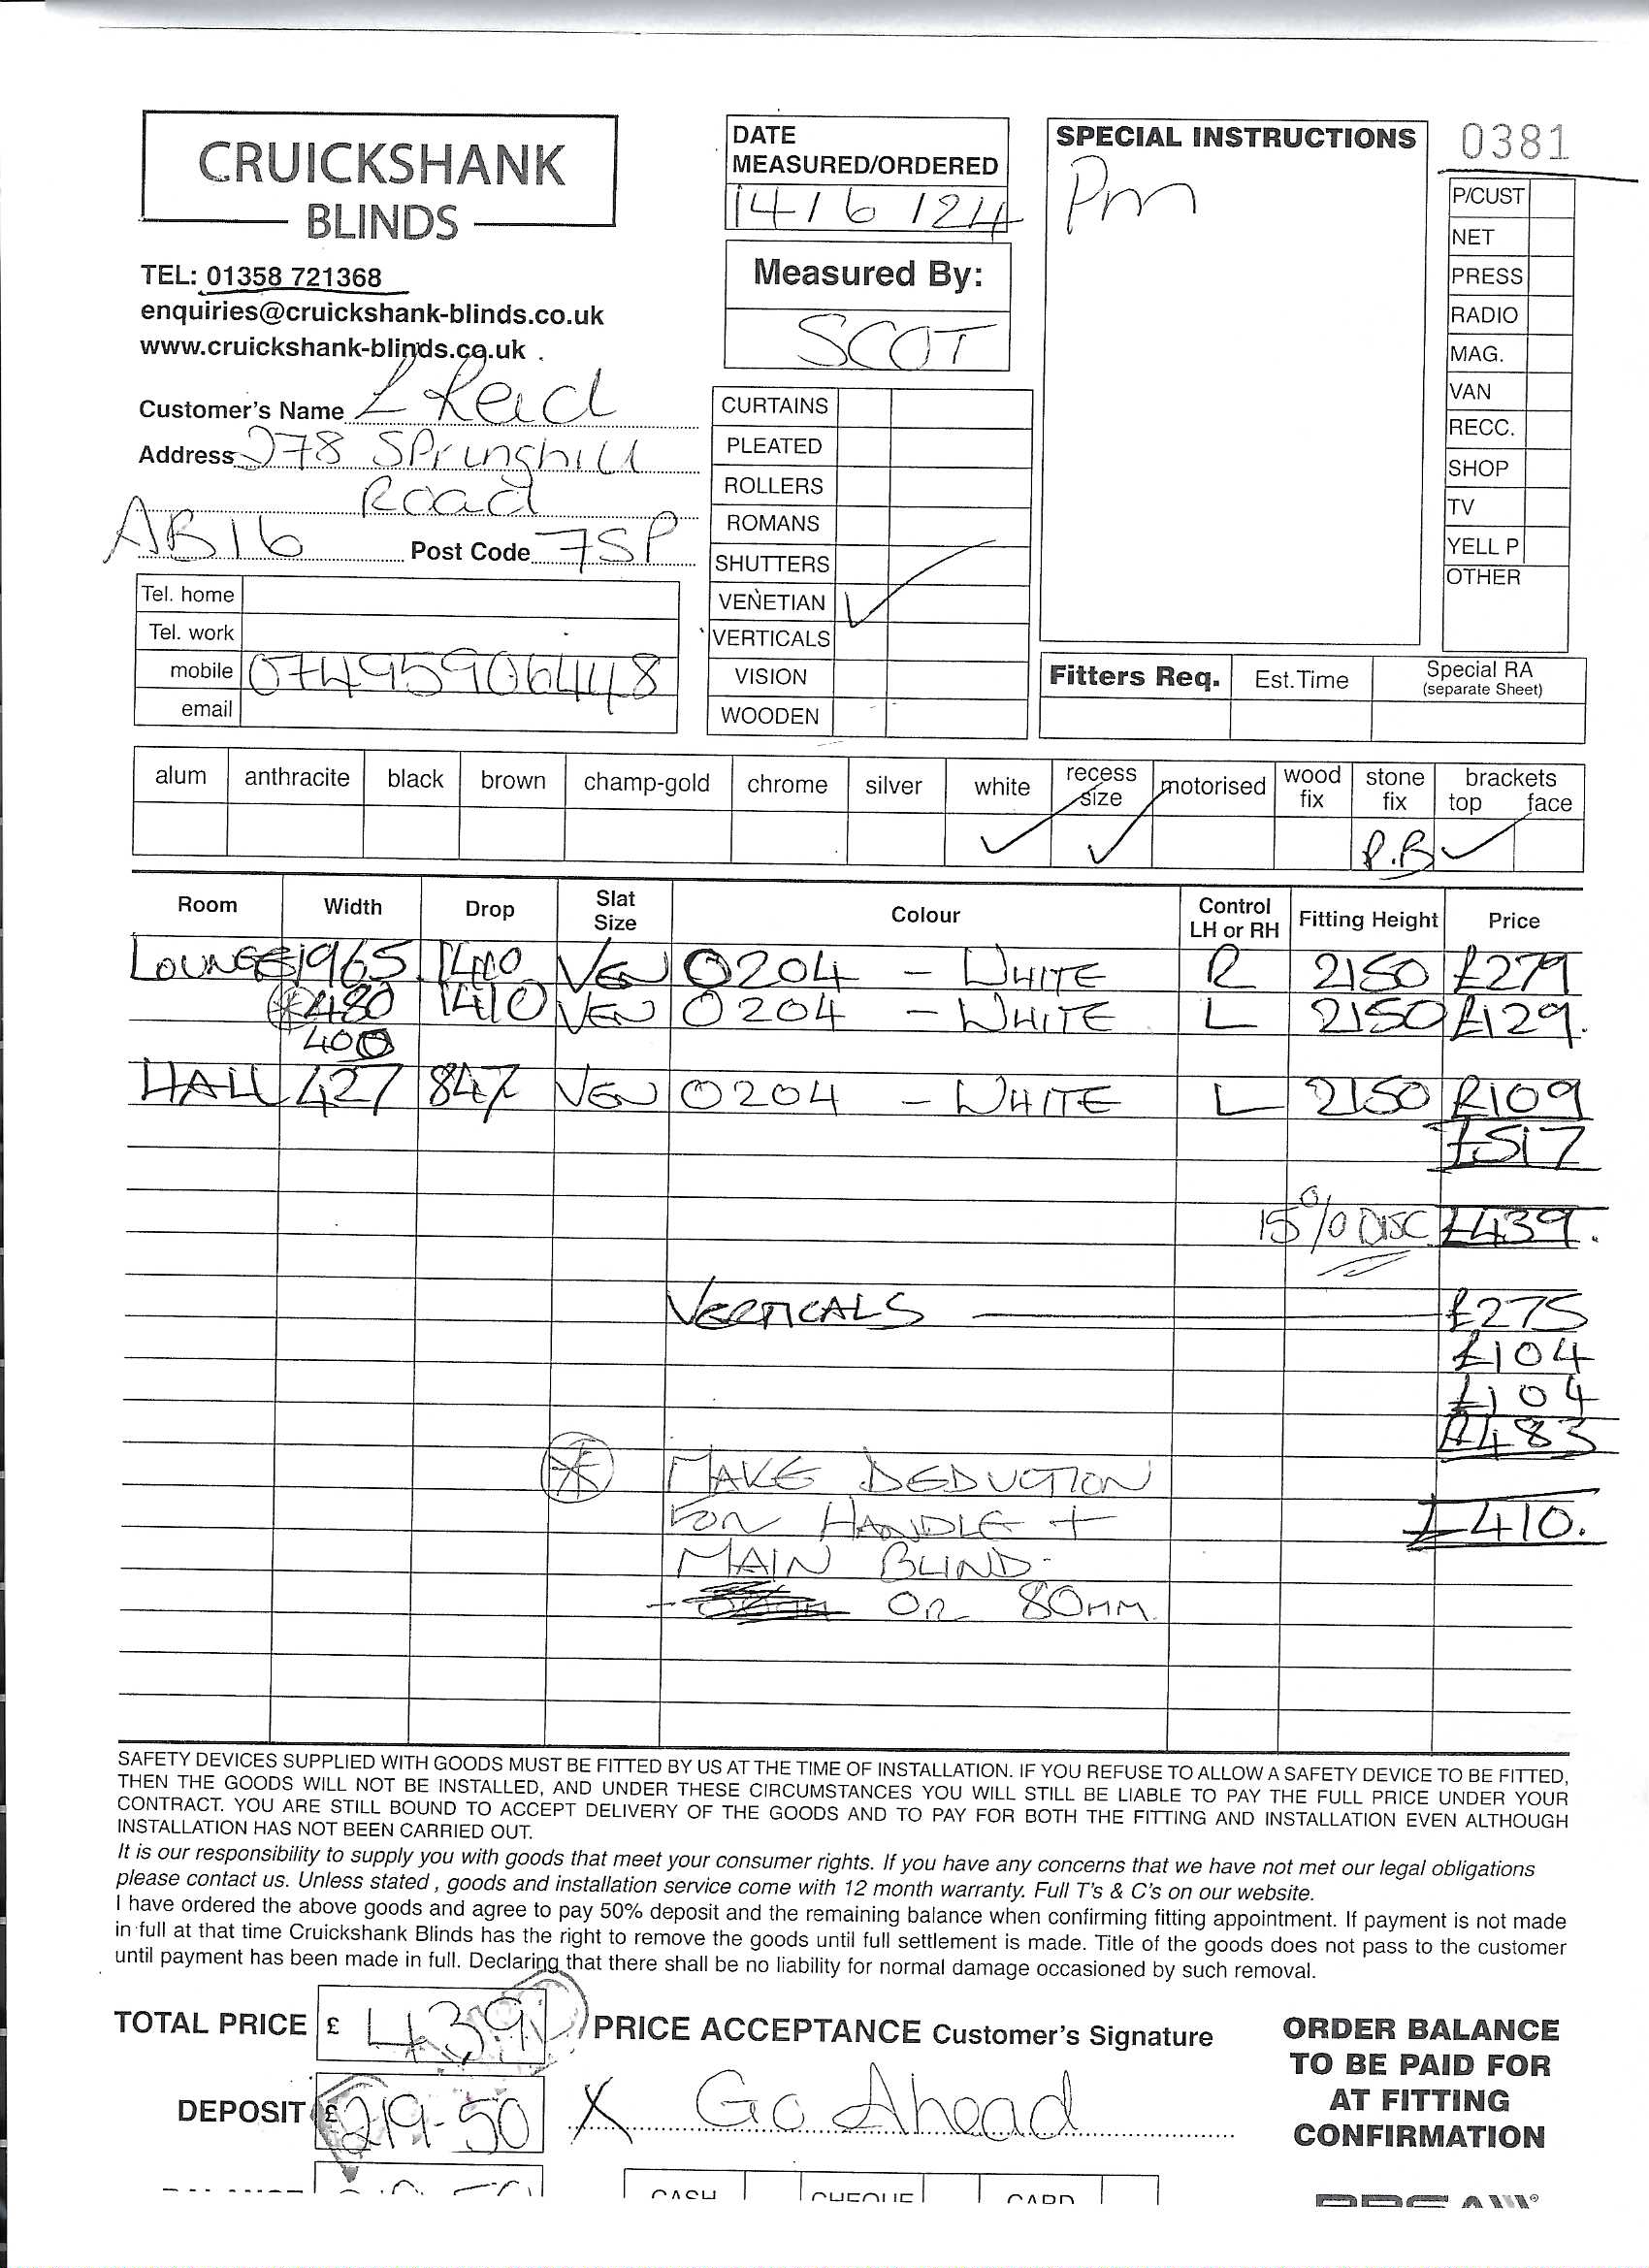 CRUICKSHANK
BLINDS
TEL: 01358 721368
enquiries@cruickshank-blinds.co.uk
www.cruickshank-blinds.co.uk
Customer's Name L Reid
Address 278 Springhill
Road
AB16 Post Code 7SP
Tel. home
Tel. work
mobile 07495906448
email
DATE
MEASURED/ORDERED
14/6/24
Measured By:
SCOT
CURTAINS
PLEATED
ROLLERS
ROMANS
SHUTTERS
VENETIAN ✓
VERTICALS
VISION
WOODEN
SPECIAL INSTRUCTIONS
Pm
0381
P/CUST
NET
PRESS
RADIO
MAG.
VAN
RECC.
SHOP
TV
YELL P
OTHER
Fitters Req. Est.Time Special RA
(separate Sheet)
alum anthracite black brown champ-gold chrome silver white recess size motorised wood fix stone fix brackets top face
✓ ✓ P.B ✓
Room Width Drop Slat Size Colour Control LH or RH Fitting Height Price
LOUNGE 1965 1410 VEN 0204 - WHITE R 2150 £279
* 480 1410 VEN 0204 - WHITE L 2150 £129.
400
HALL 427 847 VEN 0204 - WHITE L 2150 £109
£517
15% DISC £439.
VERTICALS £275
£104
£104
£483
* MAKE DEDUCTION
FOR HANDLE + £410.
MAIN BLIND.
- OR 80MM.
SAFETY DEVICES SUPPLIED WITH GOODS MUST BE FITTED BY US AT THE TIME OF INSTALLATION. IF YOU REFUSE TO ALLOW A SAFETY DEVICE TO BE FITTED,
THEN THE GOODS WILL NOT BE INSTALLED, AND UNDER THESE CIRCUMSTANCES YOU WILL STILL BE LIABLE TO PAY THE FULL PRICE UNDER YOUR
CONTRACT. YOU ARE STILL BOUND TO ACCEPT DELIVERY OF THE GOODS AND TO PAY FOR BOTH THE FITTING AND INSTALLATION EVEN ALTHOUGH
INSTALLATION HAS NOT BEEN CARRIED OUT.
It is our responsibility to supply you with goods that meet your consumer rights. If you have any concerns that we have not met our legal obligations
please contact us. Unless stated, goods and installation service come with 12 month warranty. Full T's & C's on our website.
I have ordered the above goods and agree to pay 50% deposit and the remaining balance when confirming fitting appointment. If payment is not made
in full at that time Cruickshank Blinds has the right to remove the goods until full settlement is made. Title of the goods does not pass to the customer
until payment has been made in full. Declaring that there shall be no liability for normal damage occasioned by such removal.
TOTAL PRICE £ 439
PRICE ACCEPTANCE Customer's Signature
DEPOSIT £ 219-50
X Go Ahead
ORDER BALANCE
TO BE PAID FOR
AT FITTING
CONFIRMATION
CASH CHEQUE CARD